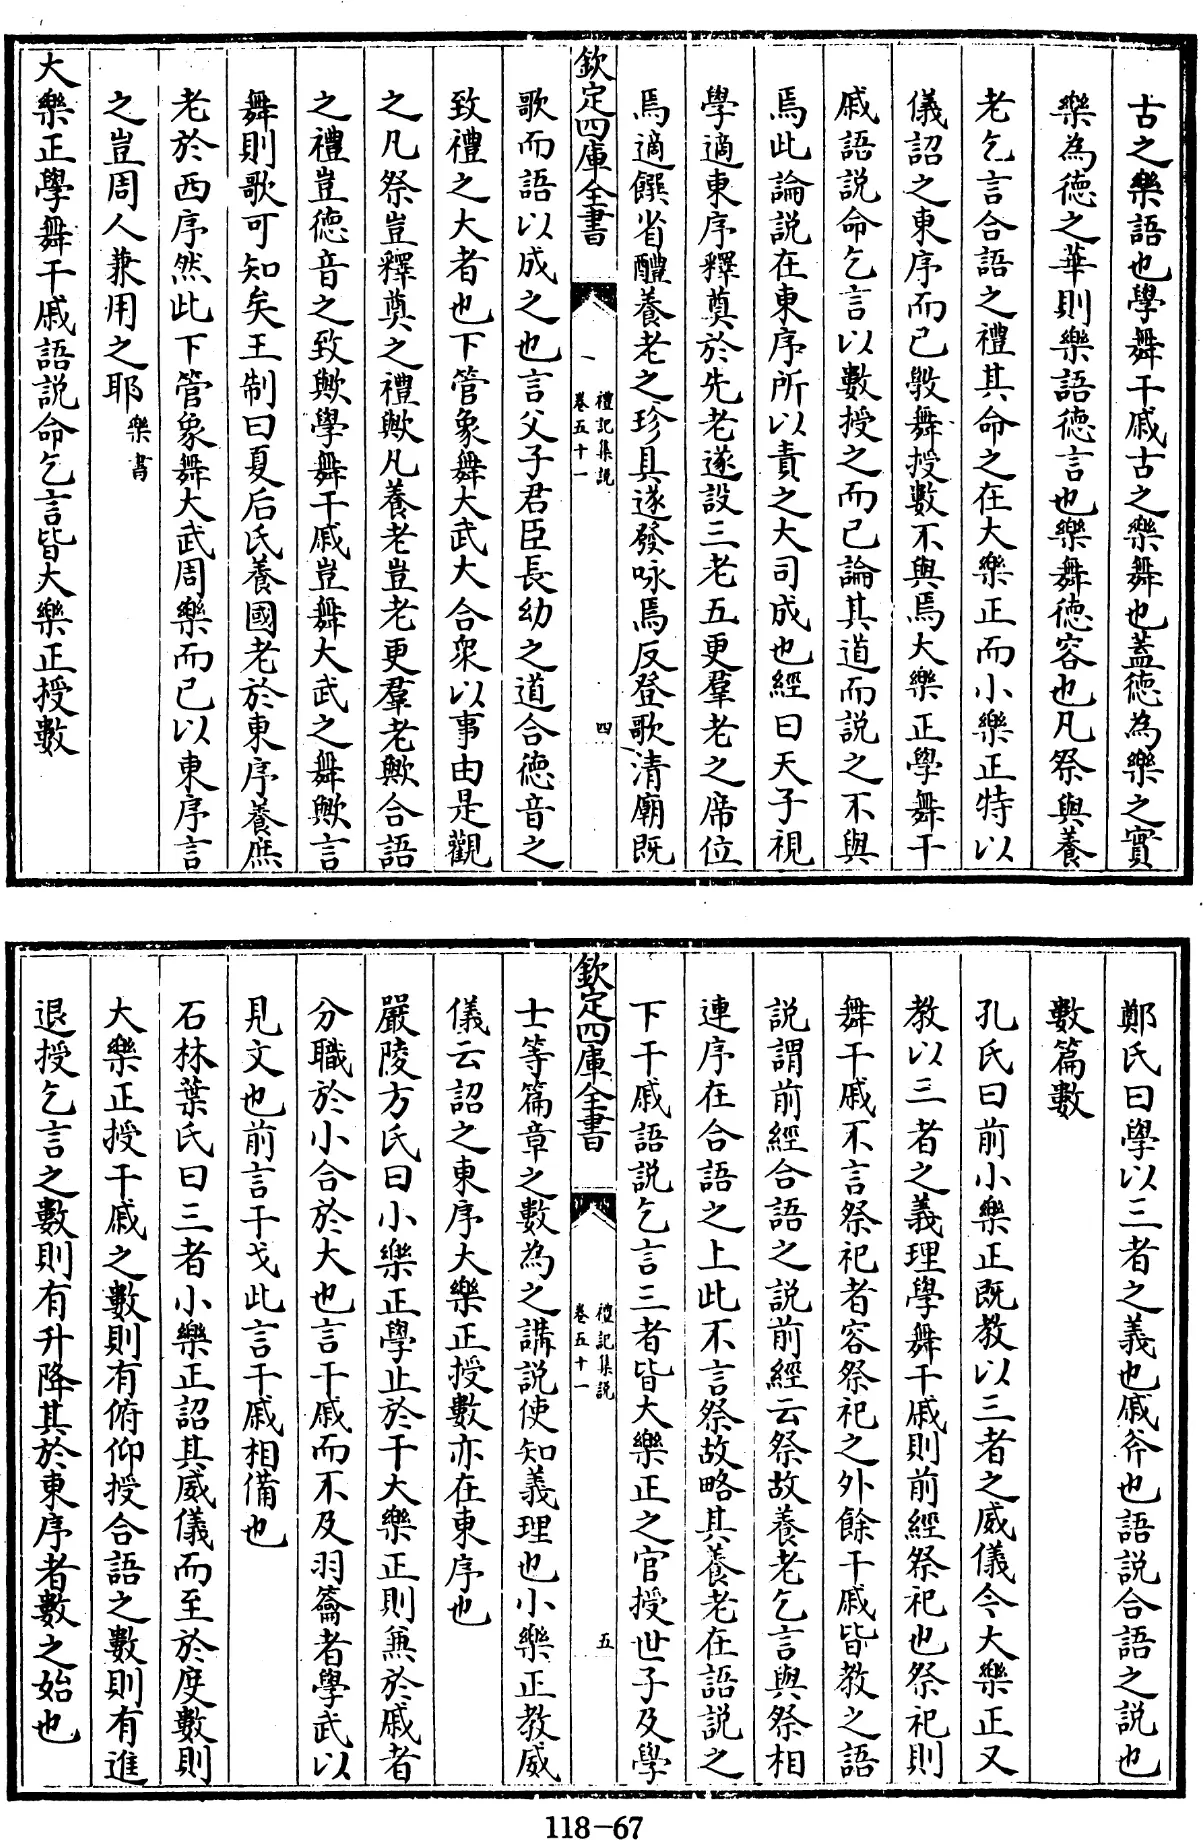 古之樂語也學舞干戚古之樂舞也蓋徳為樂之實
樂為徳之華則樂語徳言也樂舞徳容也凡祭與養
老乞言合語之禮其命之在大樂正而小樂正特以
儀詔之東序而已斆舞授數不與焉大樂正學舞干
戚語説命乞言以數授之而已論其道而說之不與
焉此論説在東序所以責之大司成也經曰天子視
學適東序釋奠於先老遂設三老五更羣老之席位
焉適饌省醴養老之珍具遂發咏焉反登歌清廟既
欽定四庫全書
禮記集説
卷五十一
四
歌而語以成之也言父子君臣長幼之道合徳音之
致禮之大者也下管象舞大武大合衆以事由是觀
之凡祭豈釋奠之禮歟凡養老豈老更羣老歟合語
之禮豈徳音之致歟學舞干戚豈舞大武之舞歟言
舞則歌可知矣王制曰夏后氏養國老於東序養庶
老於西序然此下管象舞大武周樂而已以東序言
之豈周人兼用之耶樂書
大樂正學舞干戚語説命乞言皆大樂正授數
鄭氏曰學以三者之義也戚斧也語説合語之説也
數篇數
孔氏曰前小樂正既教以三者之威儀今大樂正又
教以三者之義理學舞干戚則前經祭祀也祭祀則
舞干戚不言祭祀者容祭祀之外餘干戚皆教之語
説謂前經合語之説前經云祭故養老乞言與祭相
連序在合語之上此不言祭故略其養老在語説之
下干戚語説乞言三者皆大樂正之官授世子及學
欽定四庫全書
禮記集説
卷五十一
五
士等篇章之數為之講説使知義理也小樂正教威
儀云詔之東序大樂正授數亦在東序也
嚴陵方氏曰小樂正學止於干大樂正則兼於戚者
分職於小合於大也言干戚而不及羽籥者學武以
見文也前言干戈此言干戚相備也
石林葉氏曰三者小樂正詔其威儀而至於度數則
大樂正授干戚之數則有俯仰授合語之數則有進
退授乞言之數則有升降其於東序者數之始也
118-67